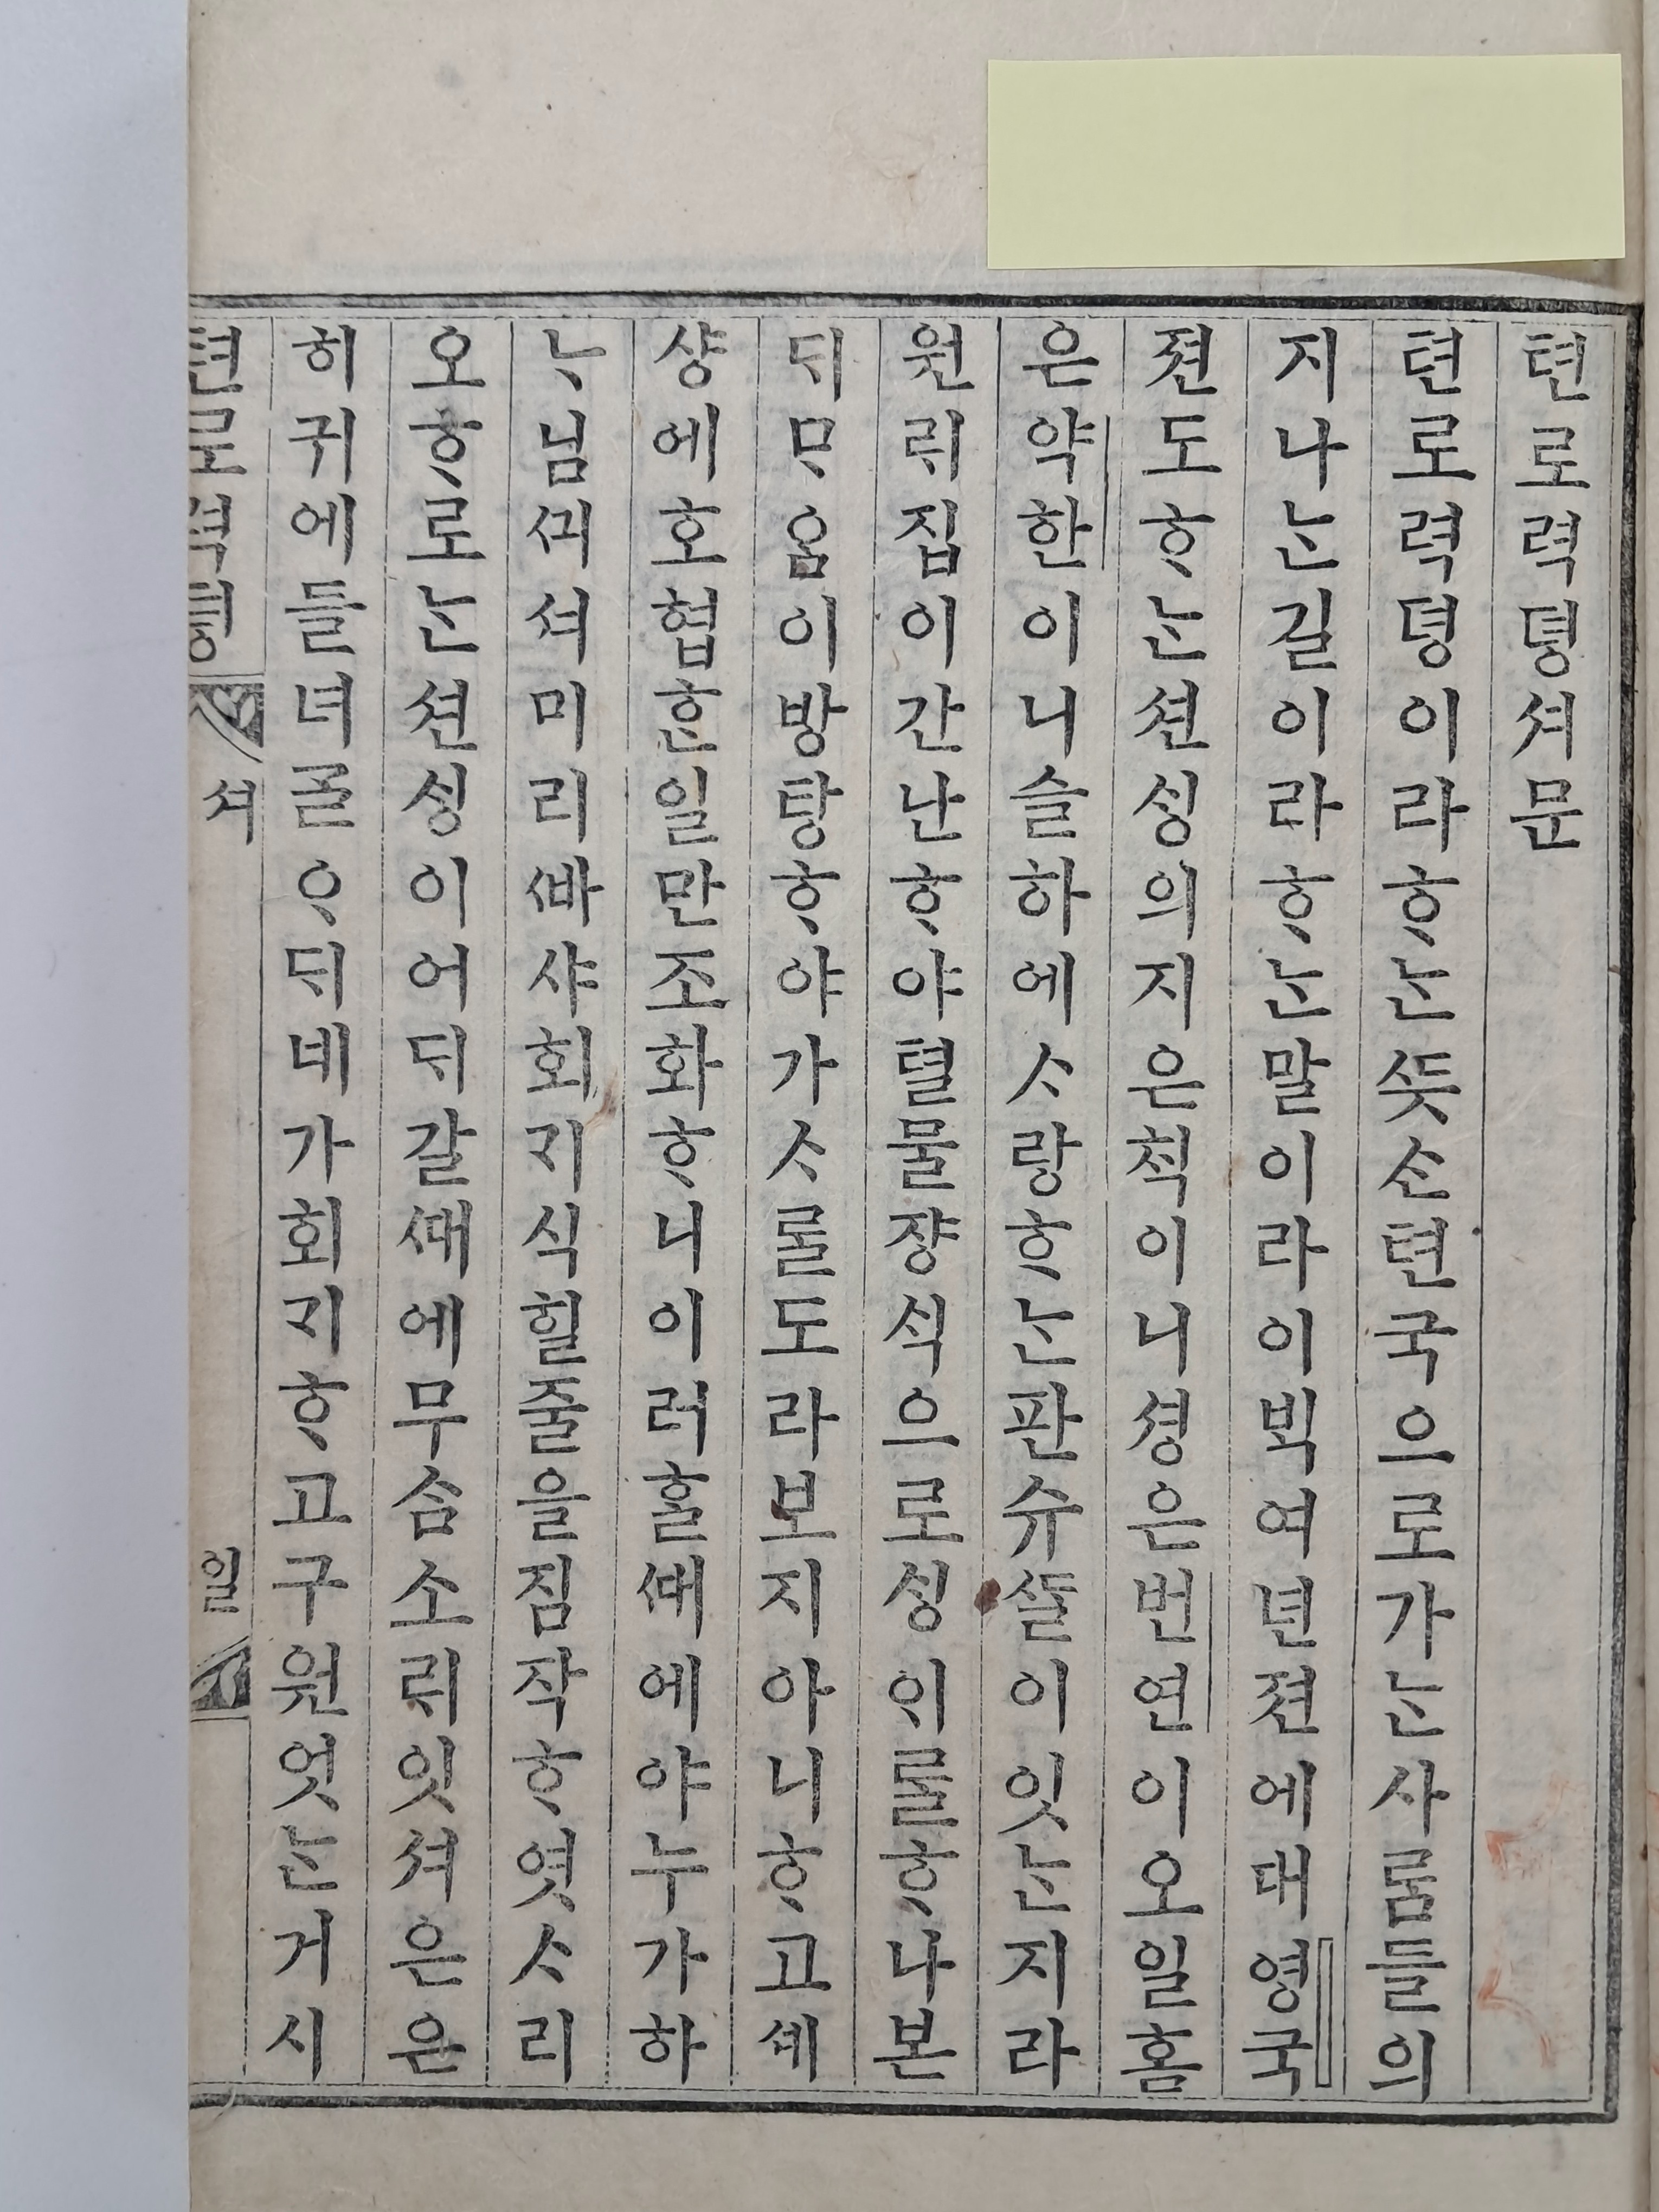 텬로력뎡셔문
텬로력뎡이라ᄒᆞᄂᆞᆫᄯᅳᆺ슨텬국으로가ᄂᆞᆫ사ᄅᆞᆷ들의
지나ᄂᆞᆫ길이라ᄒᆞᄂᆞᆫ말이라이ᄇᆡᆨ여년젼에대영국
젼도ᄒᆞᄂᆞᆫ션ᄉᆡᆼ의지은ᄎᆡᆨ이니셩은번연이오일홈
은약한이니슬하에ᄉᆞ랑ᄒᆞᄂᆞᆫ판슈ᄯᆞᆯ이잇ᄂᆞᆫ지라
원ᄅᆡ집이간난ᄒᆞ야텰물쟝ᄉᆡᆨ으로ᄉᆡᆼᄋᆡᄅᆞᆯᄒᆞ나본
ᄃᆡᄆᆞᄋᆞᆷ이방탕ᄒᆞ야가ᄉᆞᄅᆞᆯ도라보지아니ᄒᆞ고셰
샹에호협ᄒᆞᆫ일만조화ᄒᆞ니이러ᄒᆞᆯᄯᅢ에야누가하
ᄂᆞ님ᄭᅴ셔미리ᄲᅡ샤회ᄀᆡ식힐줄을짐작ᄒᆞ엿ᄉᆞ리
오ᄒᆞ로ᄂᆞᆫ션ᄉᆡᆼ이어ᄃᆡ갈ᄯᅢ에무ᄉᆞᆷ소ᄅᆡ잇셔은은
히귀에들녀ᄀᆞᆯᄋᆞᄃᆡ네가회ᄀᆡᄒᆞ고구원엇ᄂᆞᆫ거시
텬로력뎡 셔 일